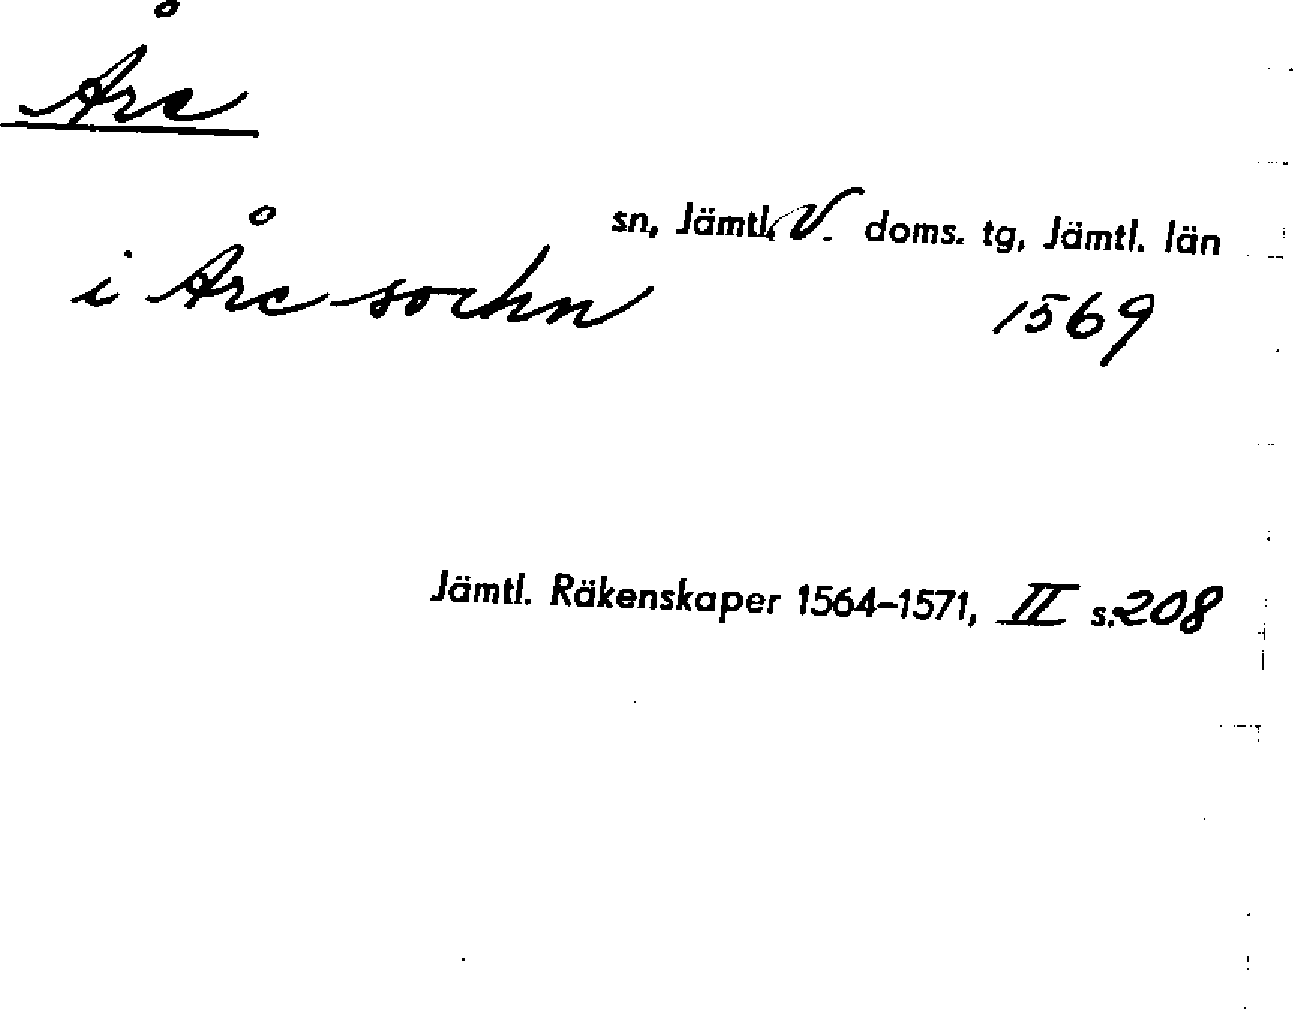 Åre
sn, Jämtl. V. doms. tg, Jämtl. län
i Åre sochn 1569
Jämtl. Räkenskaper 1564-1571, II s. 208